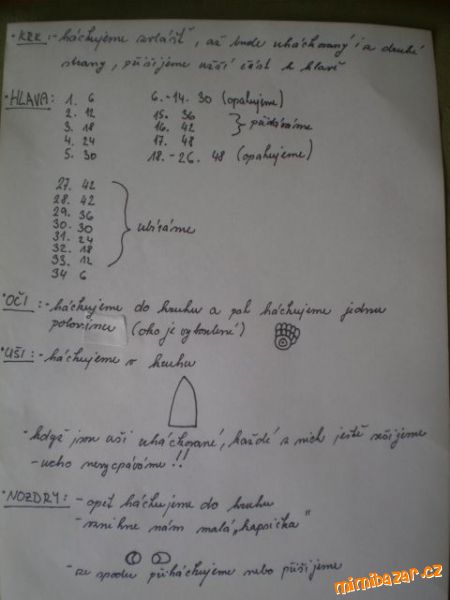 • KRK :- háčkujeme zvlášť, až bude uháčkovaný i z druhé
strany, přišijeme užší část k hlavě
• HLAVA:
1. 6
2. 12
3. 18
4. 24
5. 30
6.-14. 30 (opakujeme)
15. 36
16. 42
17. 48
přidáváme
18.-26. 48 (opakujeme)
27. 42
28. 42
29. 36
30. 30
31. 24
32. 18
33. 12
34 6
ubíráme
• OČI :- háčkujeme do kruhu a pak háčkujeme jednu
polovinu (oko je vyboulené)
• UŠI :- háčkujeme v kruhu
- když jsou uši uháčkované, každé z nich ještě sešijeme
- ucho nevycpáváme !!
• NOZDRY: - opět háčkujeme do kruhu
- vznikne nám malá „kapsička"
- ze spodu přiháčkujeme nebo přišijeme
mimibazar.cz